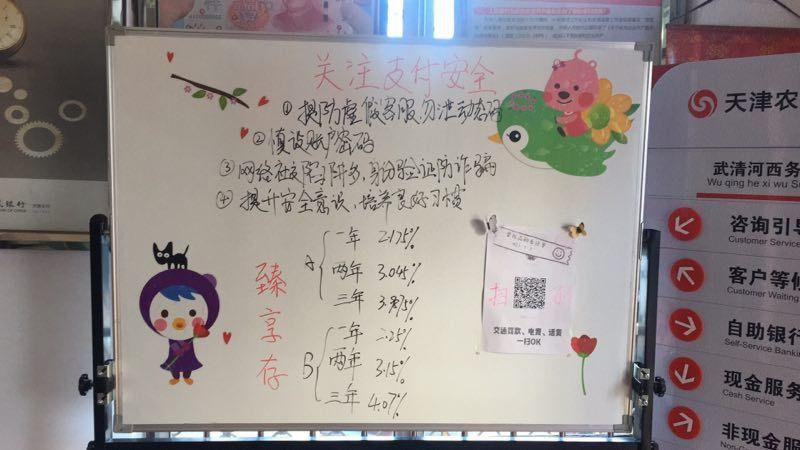 关注支付安全
①提防虚假客服,勿泄动态码
②慎设账户密码
③网络社交陷阱多,身份验证防诈骗
④提升安全意识,培养良好习惯
臻享存
A
一年 2.175%
两年 3.045%
三年
B
一年 2.25%
两年 3.15%
三年 4.07%
扫
交通罚款、电费、话费
一扫OK
天津农
武清河西务
Wu qing he xi wu S
咨询引导
Customer Service
客户等候
Customer Waiting
自助银行
Self-Service Banking
现金服务
Cash Service
非现金服
银行